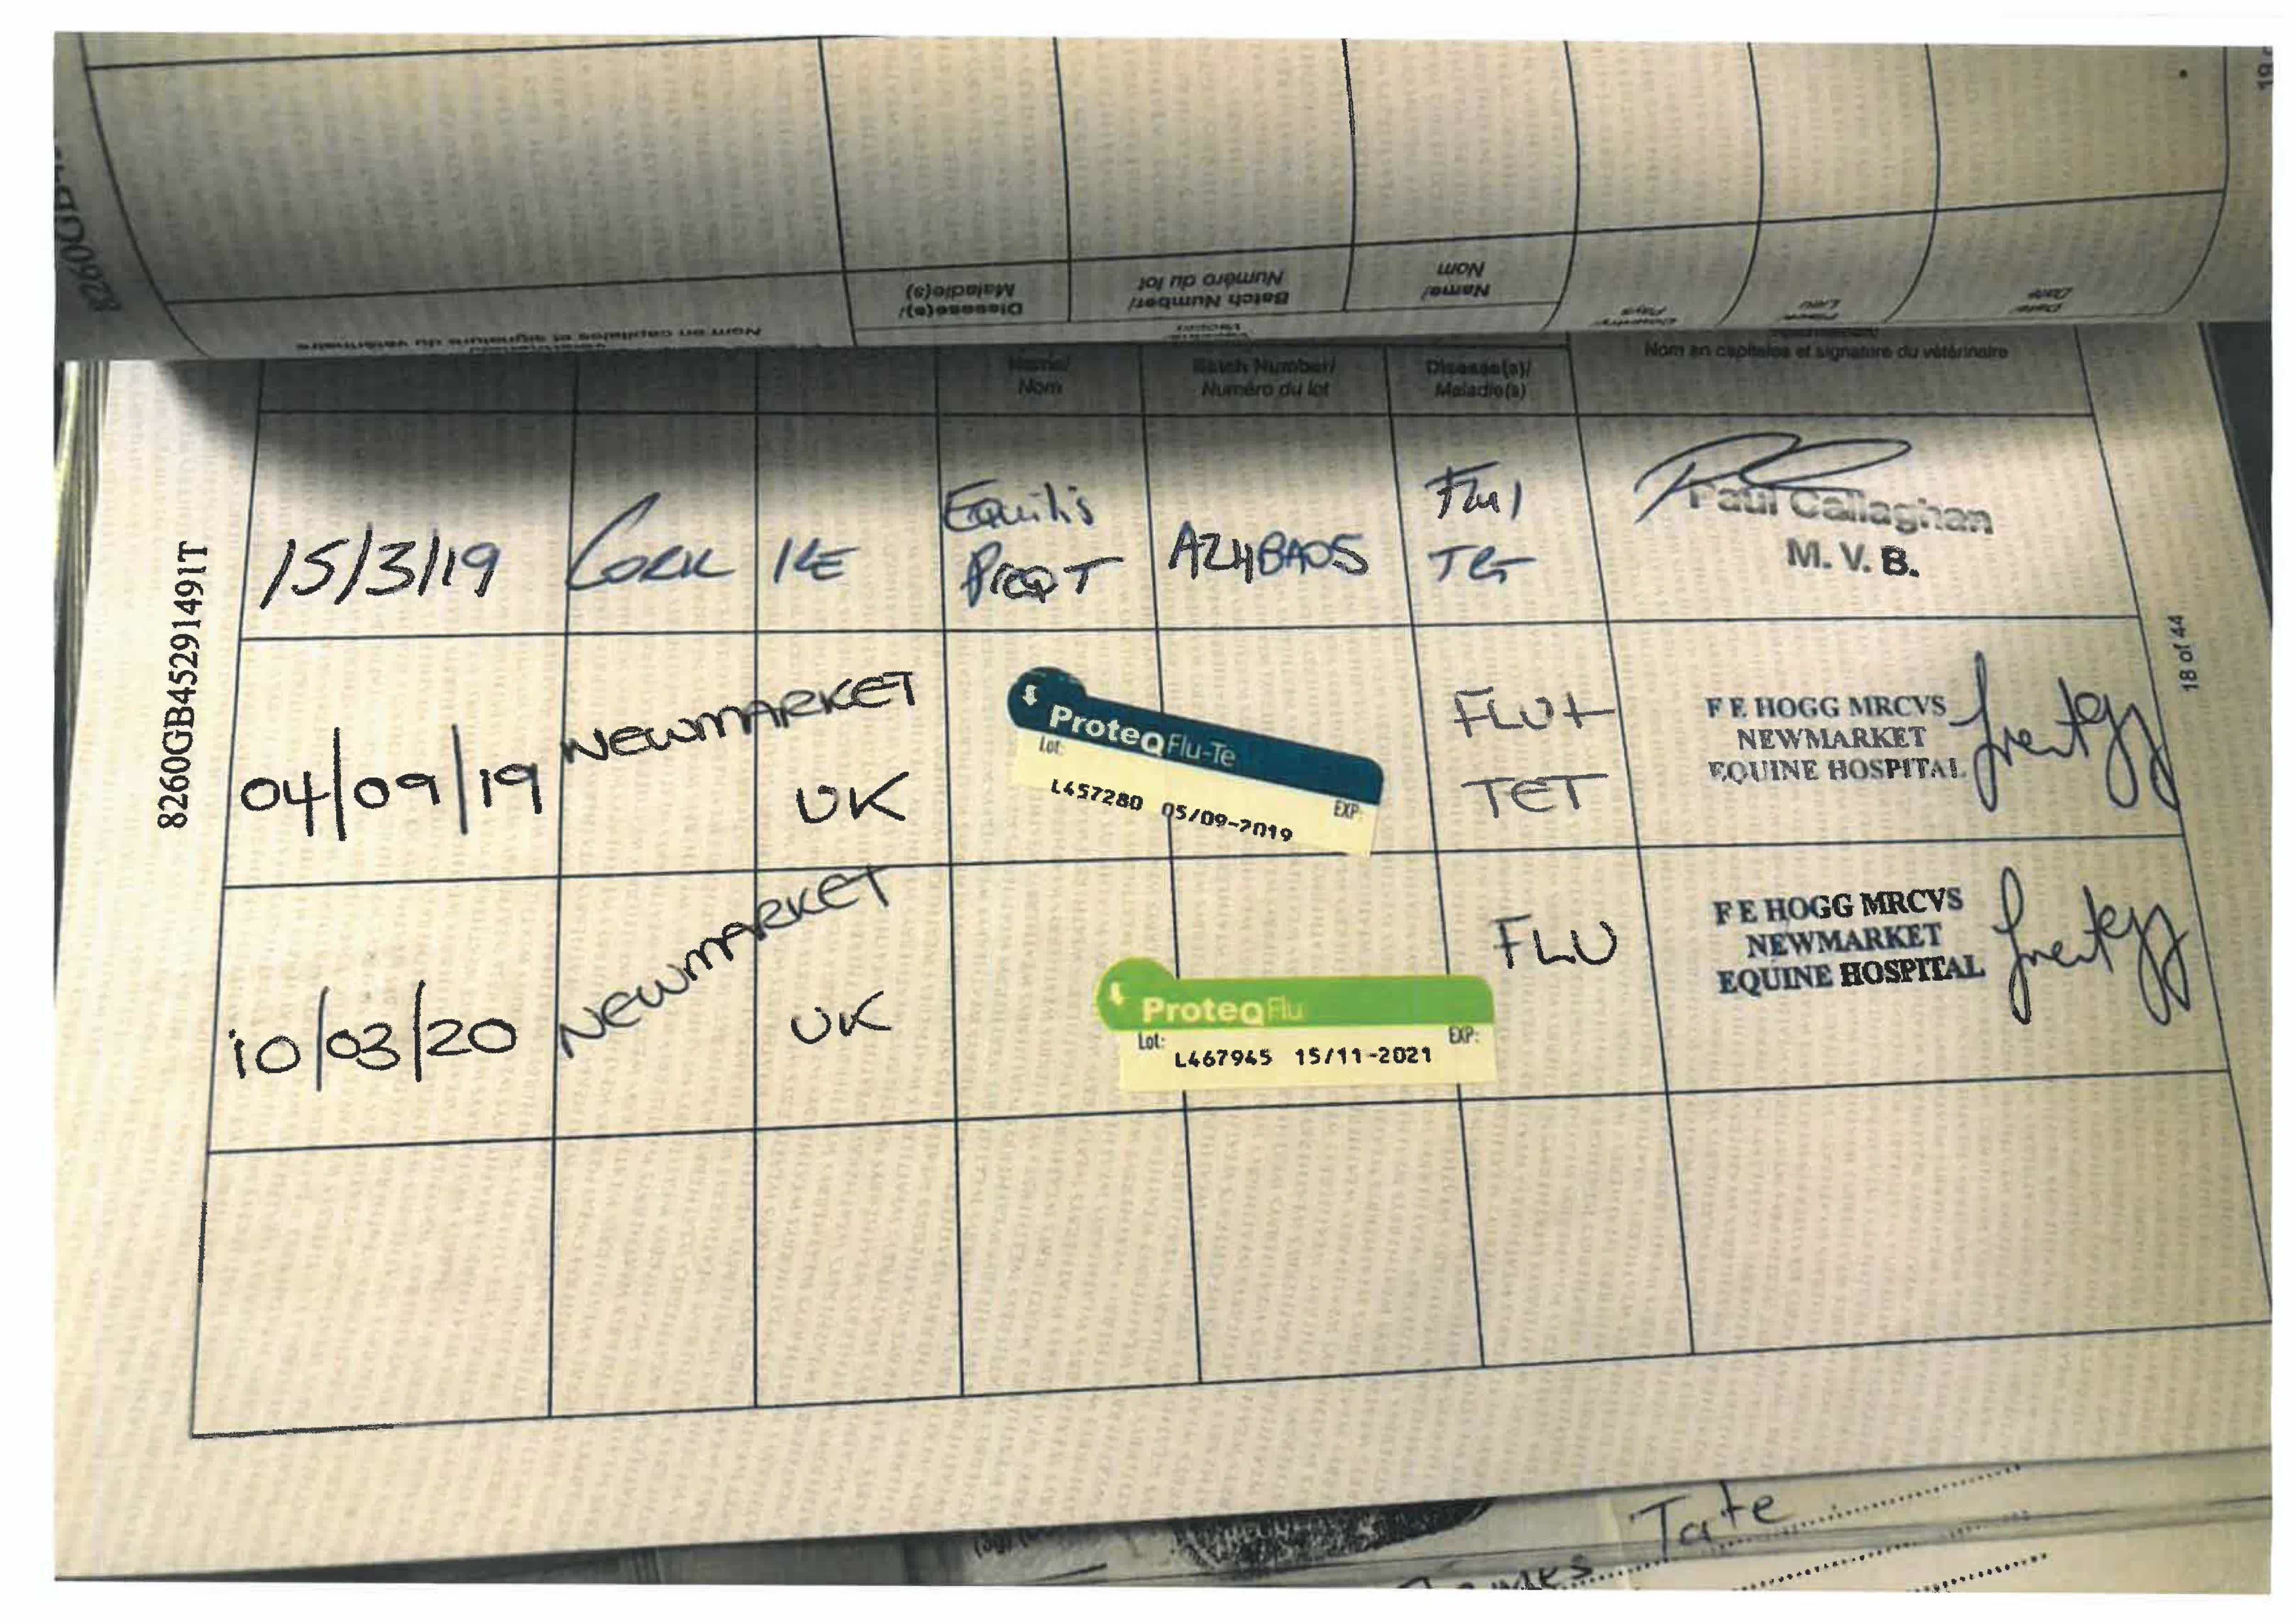 8260GB
19
Date/
Date
Place/
Lieu
Country/
Pays
Name/
Nom
Batch Number/
Numéro du lot
Disease(s)/
Maladie(s)
Nom en capitales et signature du vétérinaire
Name/
Nom
Batch Number/
Numéro du lot
Disease(s)/
Maladie(s)
Nom en capitales et signature du vétérinaire
8260GB45291491T
18 of 44
15/3/19 CORK IRE Equilis PREQ T A244BA05 Flu/ TET
Paul Callaghan
M. V. B.
04/09/19 NEWMARKET UK
ProteqFlu-Te
Lot: EXP:
L457280 05/09-2019
FLU+
TET
F E HOGG MRCVS
NEWMARKET
EQUINE HOSPITAL
10/03/20 NEWMARKET UK
ProteqFlu
Lot: EXP:
L467945 15/11-2021
FLU
F E HOGG MRCVS
NEWMARKET
EQUINE HOSPITAL
Tate